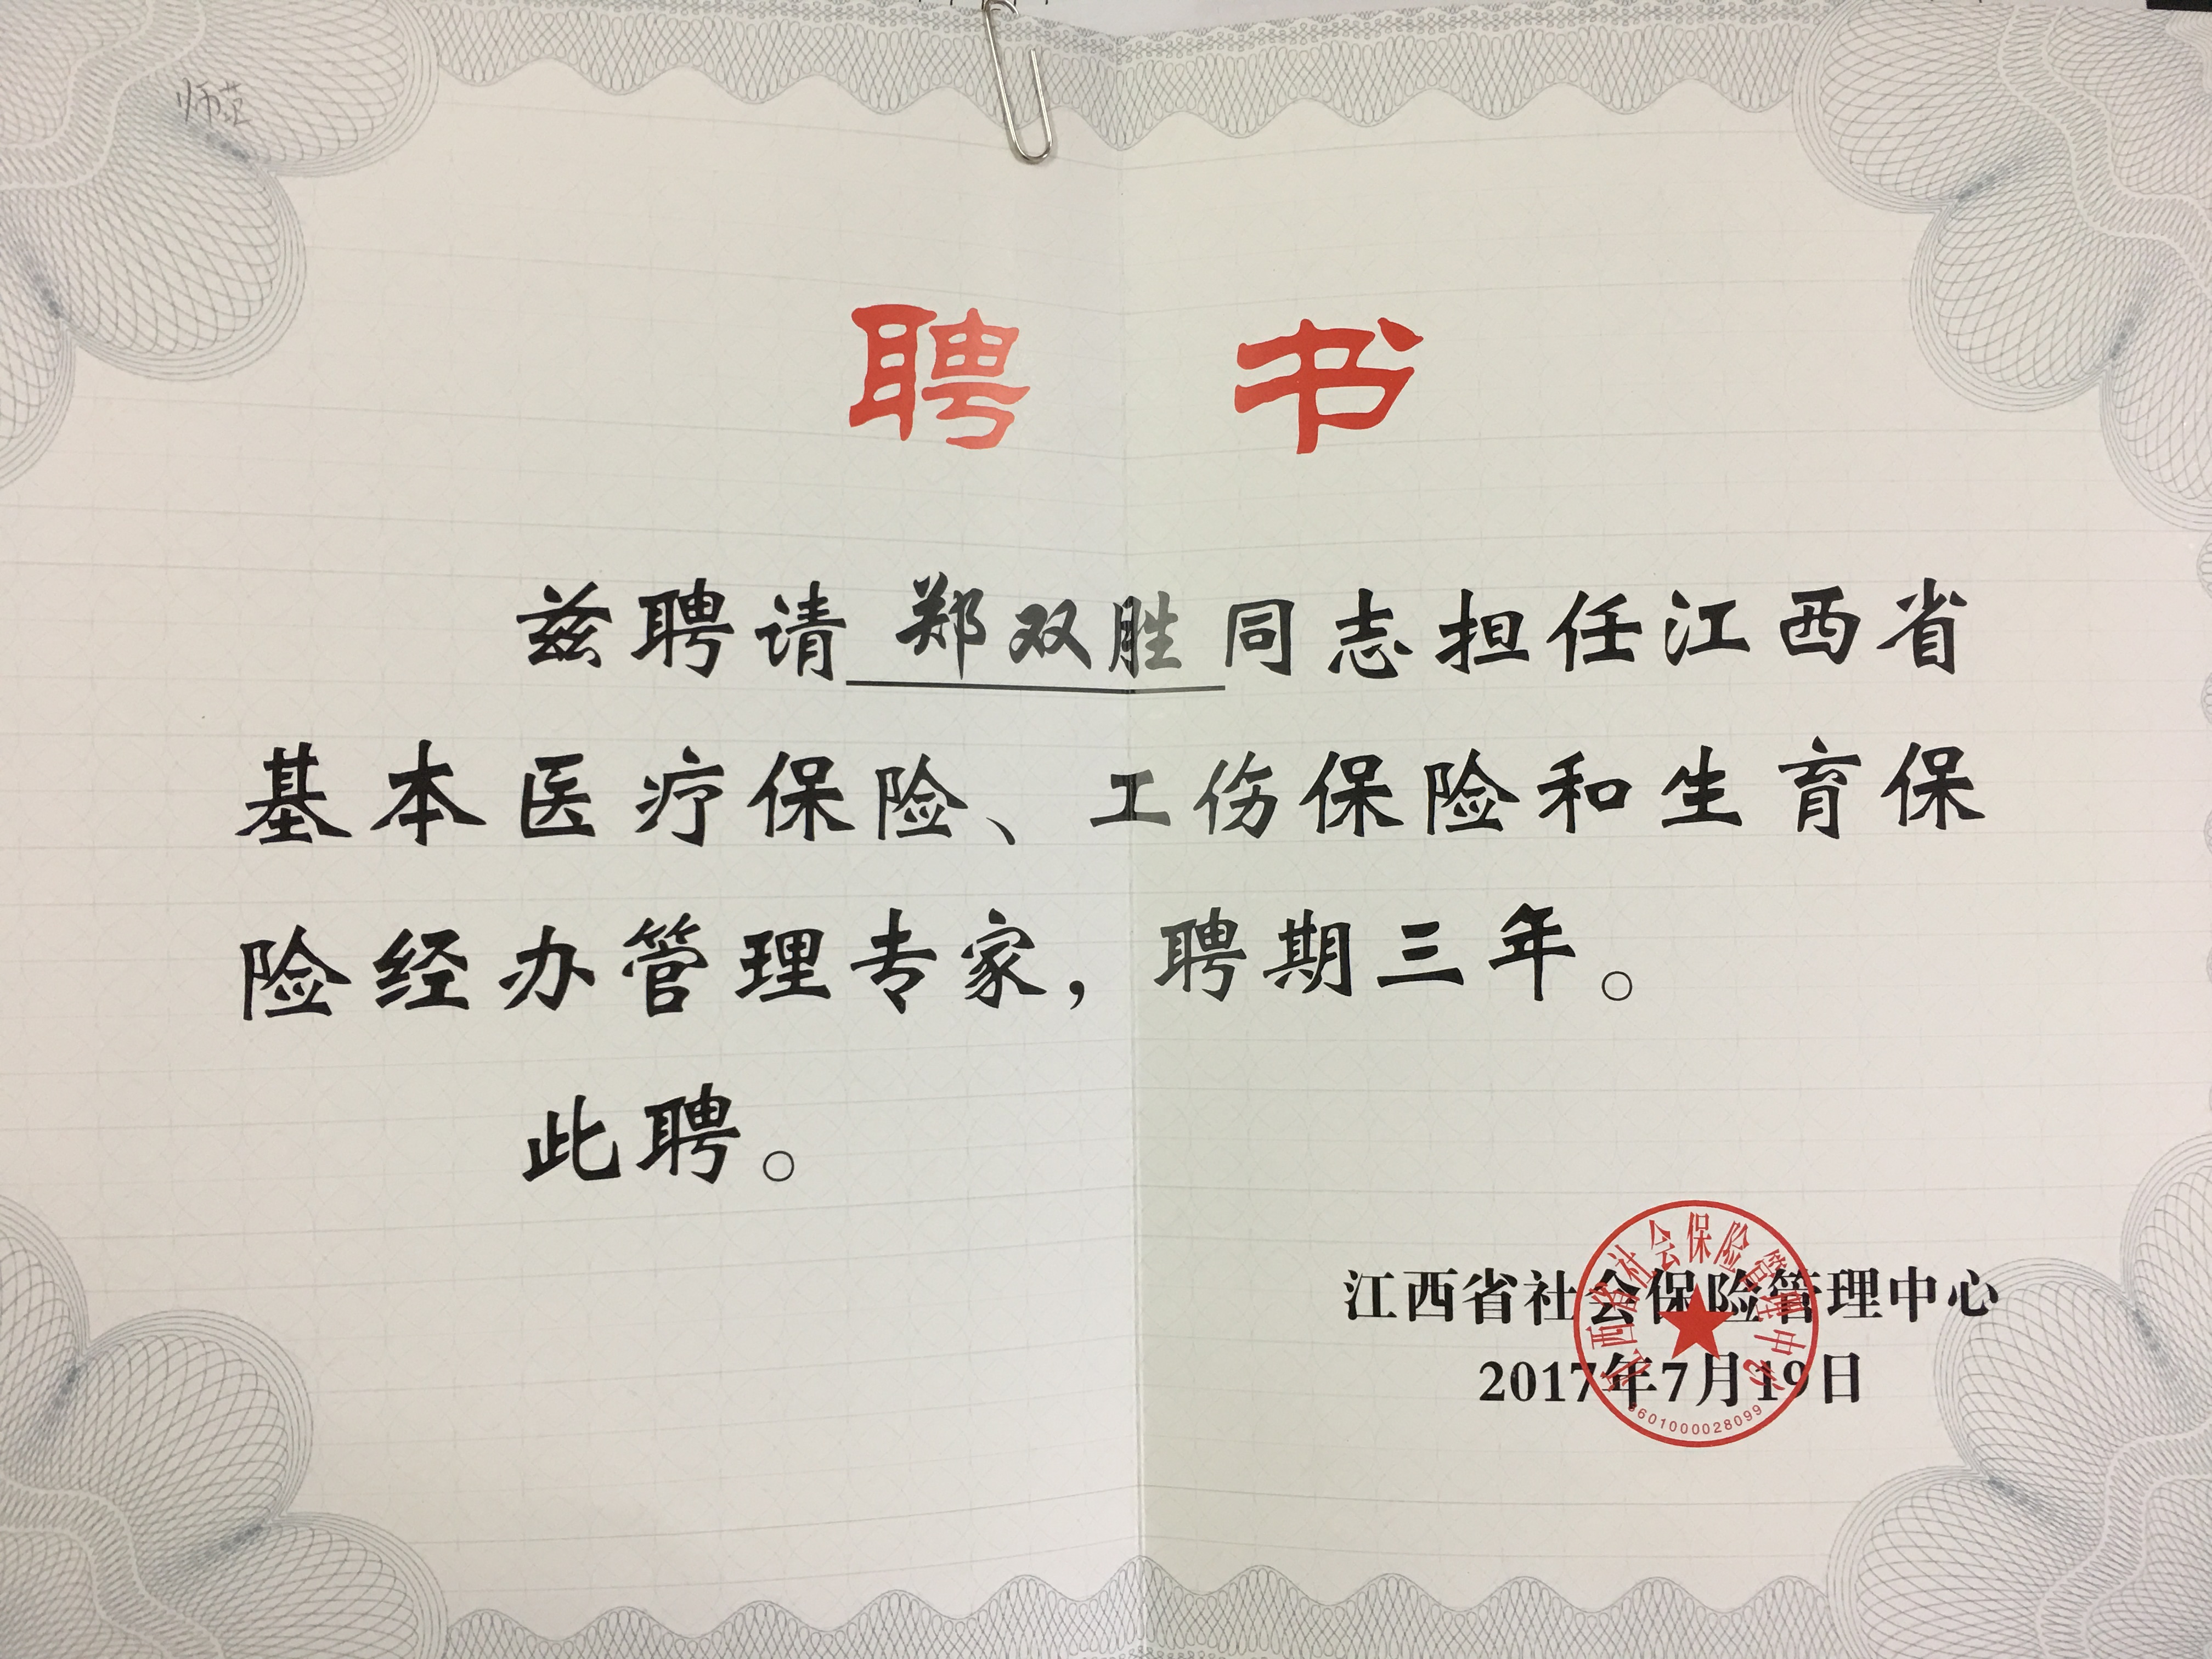 师范
聘书
兹聘请 郑双胜 同志担任江西省
基本医疗保险、工伤保险和生育保
险经办管理专家，聘期三年。
此聘。
江西省社会保险管理中心
2017年7月19日
江西省社会保险管理中心
3601000028099